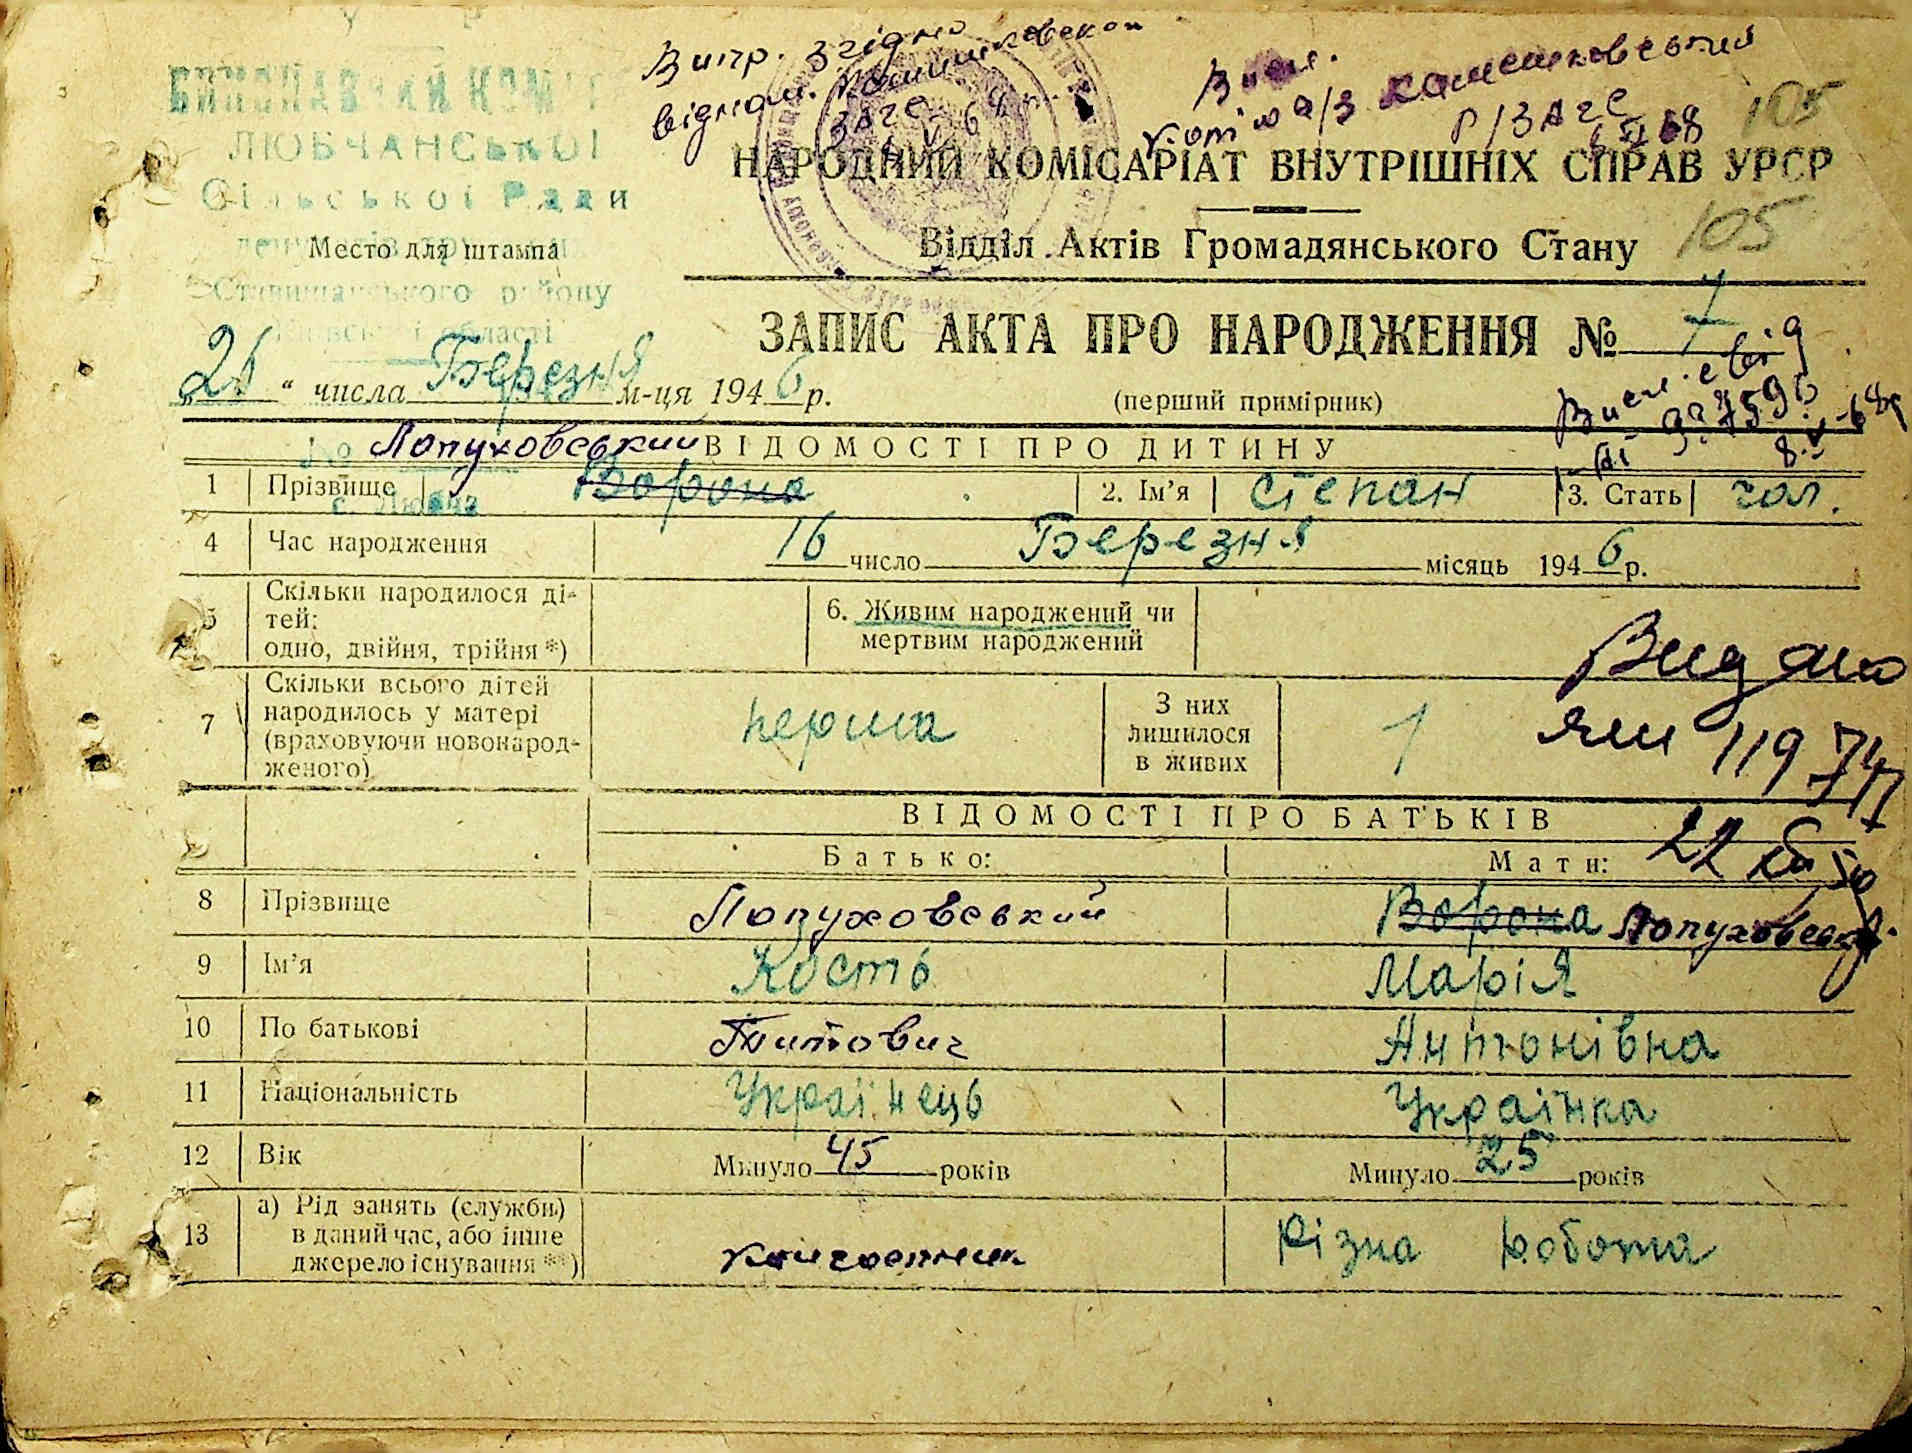 ВИКОНАВЧИЙ КОМ
ЛЮБЧАНСЬКОЇ
Сільської Ради
Ставищанського району
області
Випр. згідно
відном.
Камешковський
Р/ЗАГС
68
105
НАРОДНИЙ КОМІСАРІАТ ВНУТРІШНІХ СПРАВ УРСР
105
Місто для штампа
Відділ Актів Громадянського Стану
ЗАПИС АКТА ПРО НАРОДЖЕННЯ № 7
„26“ числа Березня м-ця 1946 р.
(перший примірник)
ВІДОМОСТІ ПРО ДИТИНУ
Лопуховський
1 Прізвище Ворона 2. Ім'я Степан 3. Стать чол.
с. Любча
4 Час народження 16 число Березня місяць 1946 р.
5 Скільки народилося ді-
тей:
одно, двійня, трійня *)
6. Живим народжений чи
мертвим народжений
Видано
7 Скільки всього дітей
народилось у матері
(враховуючи новонарод-
женого)
перша
З них
лишилося
в живих
1
ВІДОМОСТІ ПРО БАТЬКІВ
Батько: Мати:
8 Прізвище Лопуховський Ворона Лопуховська
9 Ім'я Кость Марія
10 По батькові Титович Антонівна
11 Національність Українець Українка
12 Вік Минуло 45 років Минуло 25 років
13 а) Рід занять (служби)
в даний час, або інше
джерело існування **)
колгоспник Різна робота